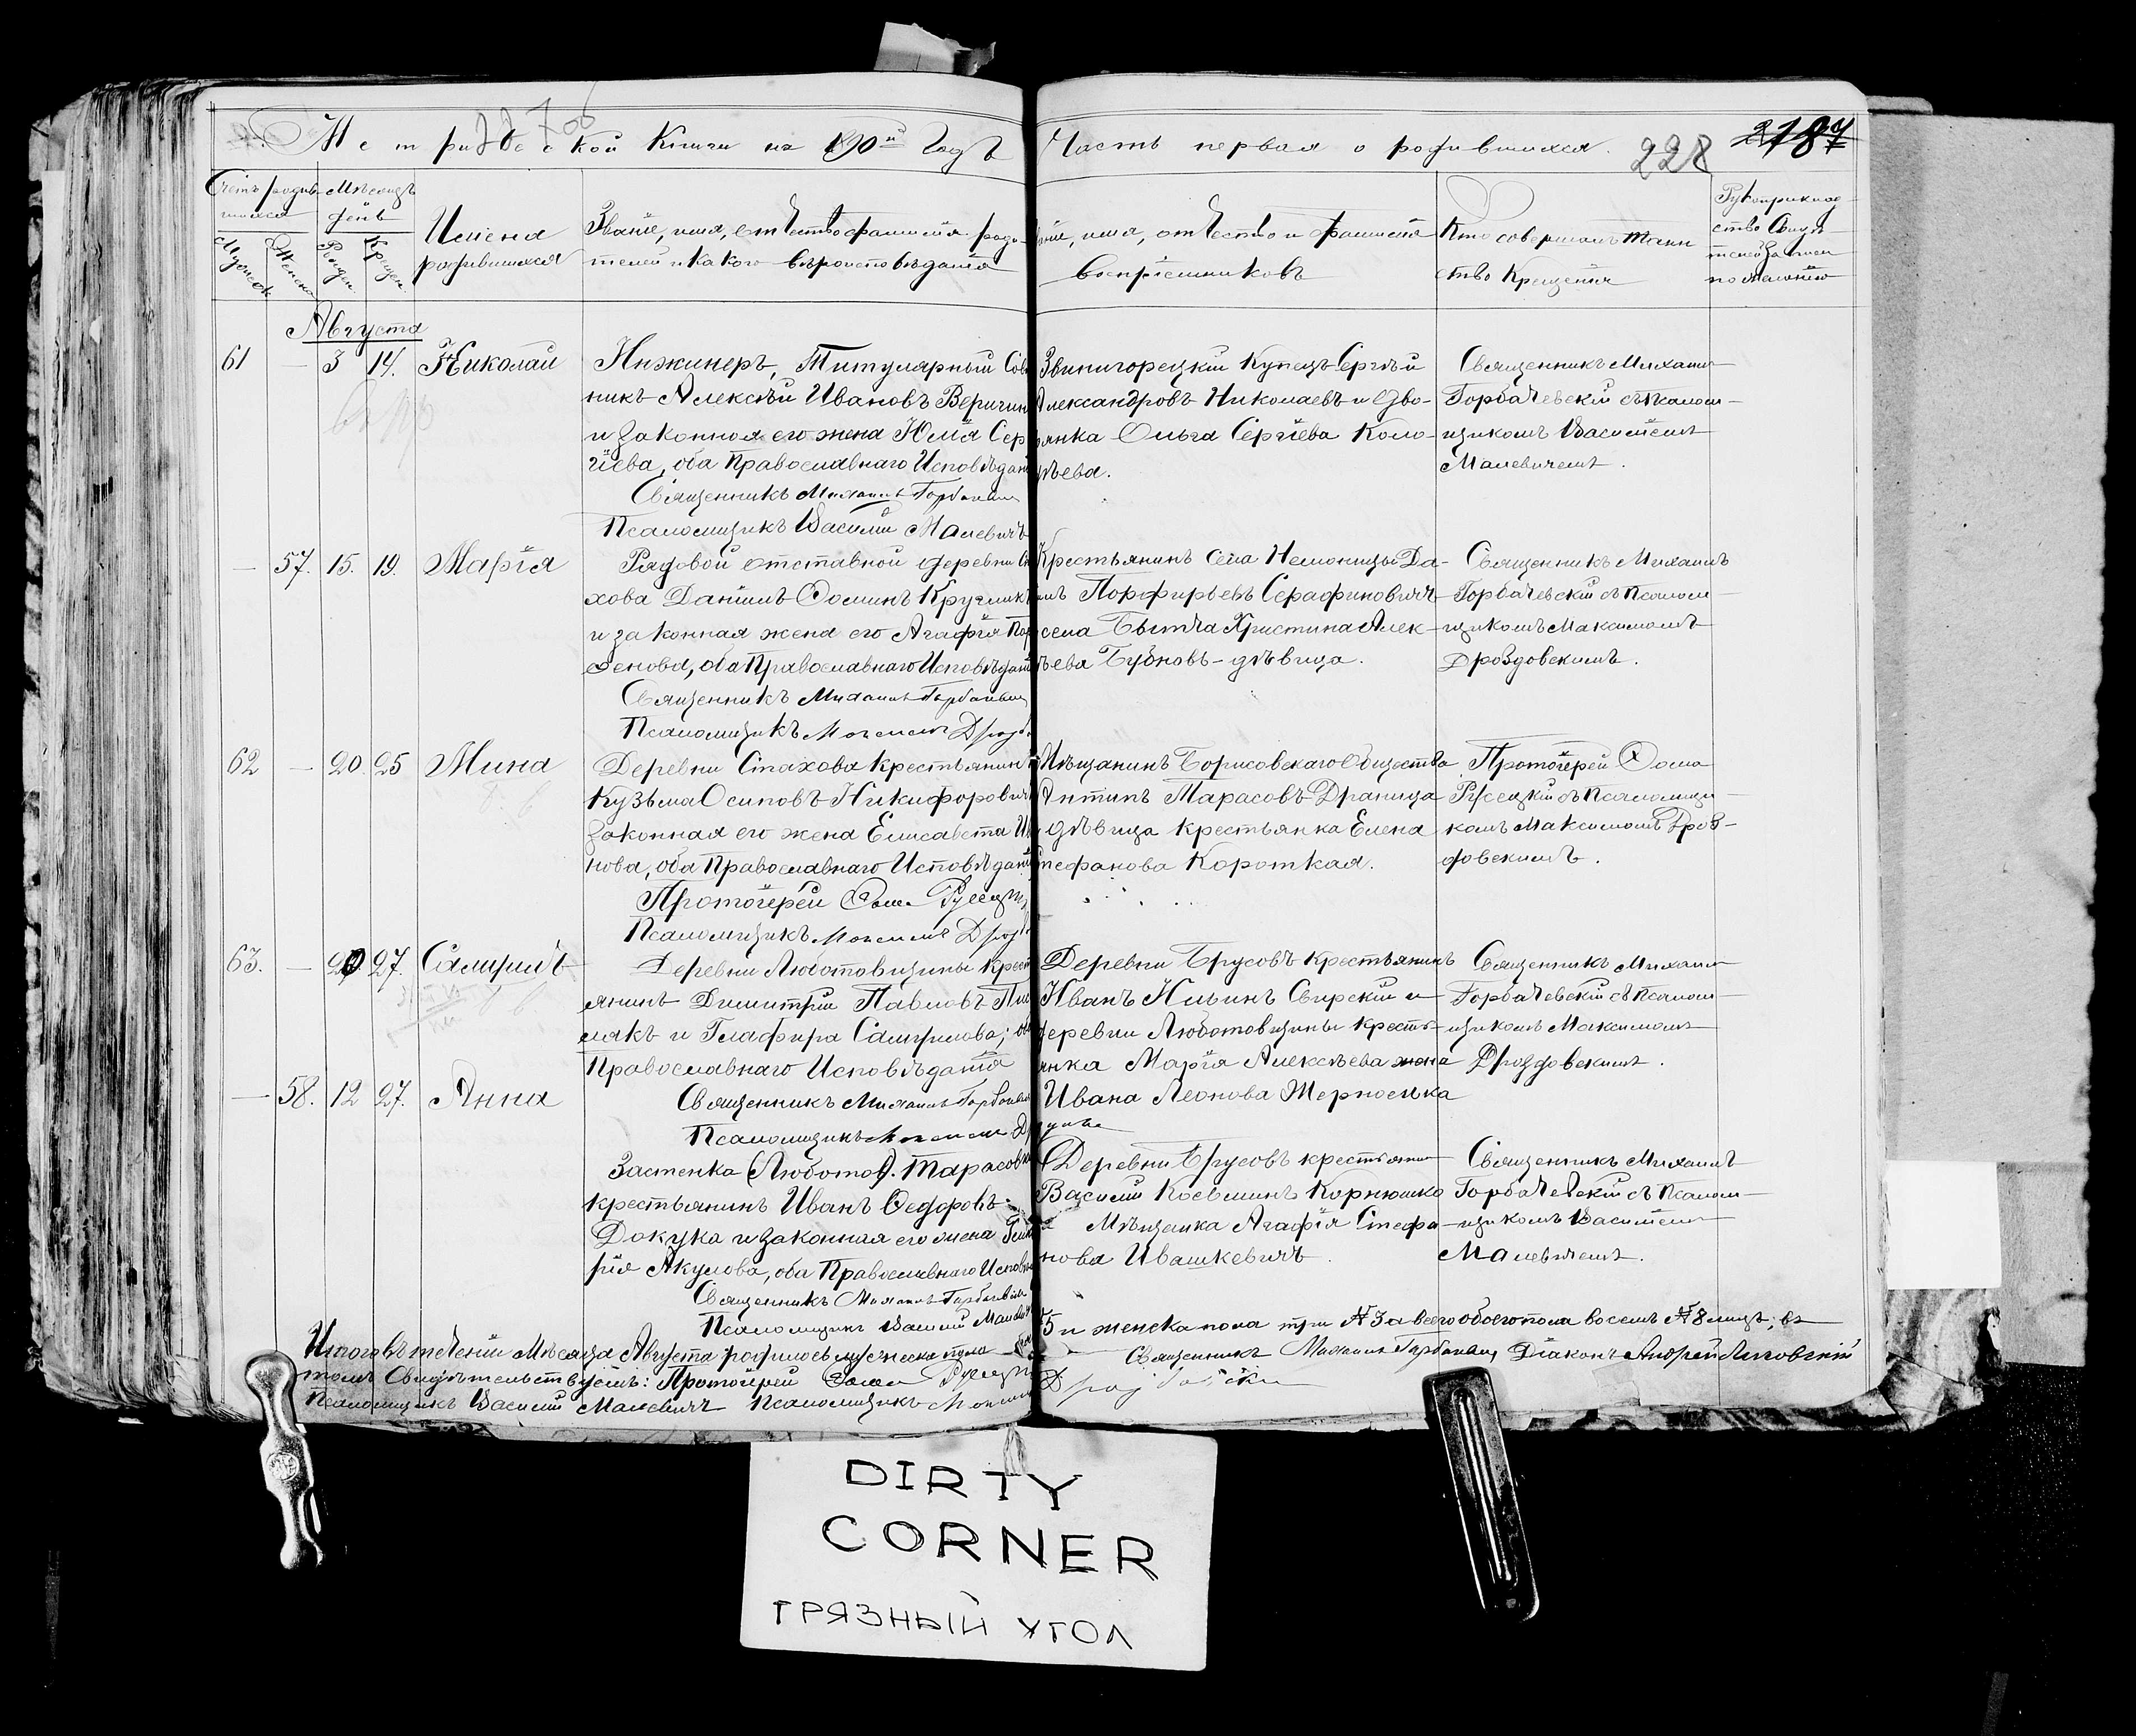 Метрической Книги на 1890й Годъ
Часть первая о родившихся.
228
Счетъ родив-
шихся
Мужеск
Женска
Мѣсяцъ
день
Рожден.
Крещен.
Имена
родившихся
Званіе, имя, отчество фамилія роди-
телей и какого вѣроисповѣданія
имя, отчество и фамилія
воспріемниковъ
Кто совершалъ Таин
ство Крещенія
Рукоприклад
ство Свидѣ
телей записи
по желанію
Августа
61 — 3 14. Николай
Инжинеръ, Титулярный Сов
никъ Алексѣй Ивановъ Веричин
и законная его жена Юлія Сер
гіева, оба Православнаго Исповѣдан
Священникъ Михаилъ Горбачевск
Псаломщикъ Василій Малевичъ
Звинигородскій Купецъ Сергѣй
Александровъ Николаевъ и Дво-
янка Ольга Сергіева Коло-
ѣева.
Священникъ Михаил
Горбачевскій съ псалом-
щикомъ Василіемъ
Малевичемъ.
— 57. 15. 19. Марія
Рядовой отставной деревни Ст
хова Даніилъ Ѳоминъ Кругликъ
и законная жена его Агафія Пар
ѳенова, оба Православнаго Исповѣдан
Священникъ Михаилъ Горбачевск
Псаломщикъ Максимъ Дрозд
Крестьянинъ села Немоницы Да-
илъ Порфирьевъ Серафиновичъ
села Бытча Христина Алек-
ѣева Бубновъ - дѣвица.
Священникъ Михаилъ
Горбачевскій съ Псалом-
щикомъ Максимомъ
Дроздовскимъ.
62 — 20 25 Мина
Деревни Стахова крестьянинъ
Кузьма Осиповъ Никифоровичъ
законная его жена Елисавета Ива
нова, оба Православнаго Исповѣдан
Протоіерей Ѳома Русецк
Псаломщикъ Максимъ Дрозд
Мѣщанинъ Борисовскаго Общества
Антипъ Тарасовъ Драница
дѣвица крестьянка Елена
тефанова Короткая.
Протоіерей Ѳома
Русецкій съ Псаломщи-
комъ Максимомъ Дроз-
довскимъ.
63. — 20 27. Самуилъ
Деревни Любатовщины крест
янинъ Димитрій Павловъ
и Глафира Самуилова; оба
Православнаго Исповѣданія
Священникъ Михаилъ Горбачевск
Псаломщикъ Максимъ Др
Деревни Брусовъ крестьянинъ
Иванъ Ильинъ Свирскій и
деревни Любатовщины кресть-
янка Марія Алексѣева жена
Ивана Леонова Жерносѣка
Священникъ Михаил
Горбачевскій съ псалом-
щикомъ Максимомъ
Дроздовскимъ.
— 58. 12 27. Анна
Застенка (Любатов). Тарасовк
крестьянинъ Иванъ Ѳедоровъ
Докука и законная его жена
рія Акулова, оба Православнаго Исповѣ
Священникъ Михаилъ Горбачевск
Псаломщикъ Василій Малевич
Деревни Брусовъ крестьянин
Василій Корнюшко
Мѣщанка Агафія Стефа-
нова Ивашкевичъ.
Священникъ Михаилъ
Горбачевскій съ Псалом-
щикомъ Василіемъ
Малевичемъ.
Итого въ теченіи Мѣсяца Августа родилось мужеска пола
5 и женска пола три №3 а всего обоего пола восемь №8 лицъ; въ
томъ Свидѣтельствуемъ: Протоіерей Ѳома Русецк
Священникъ Михаилъ Горбачевск, Діаконъ Андрей Лиговскій
Псаломщикъ Василій Малевичъ Псаломщикъ Максим
Дроздовскій
DIRTY
CORNER
ГРЯЗНЫЙ УГОЛ